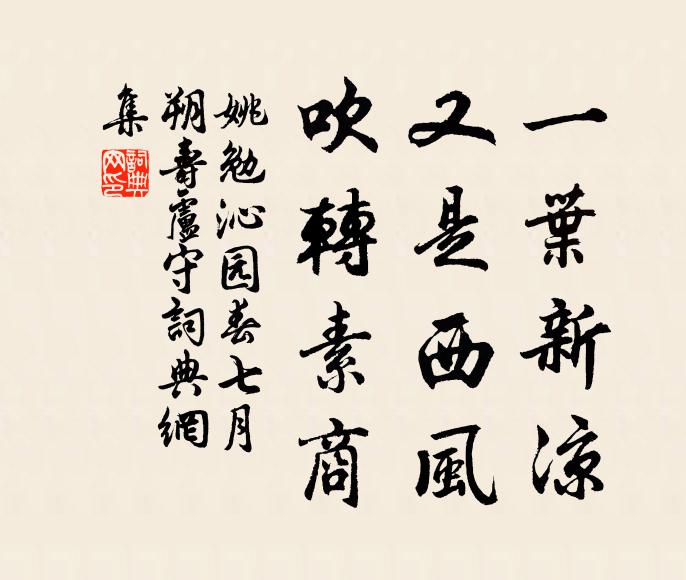 一葉新涼
又是西風
吹轉素商
姚勉沁园春七月
朔壽盧守詞典網
集
詞典
网印